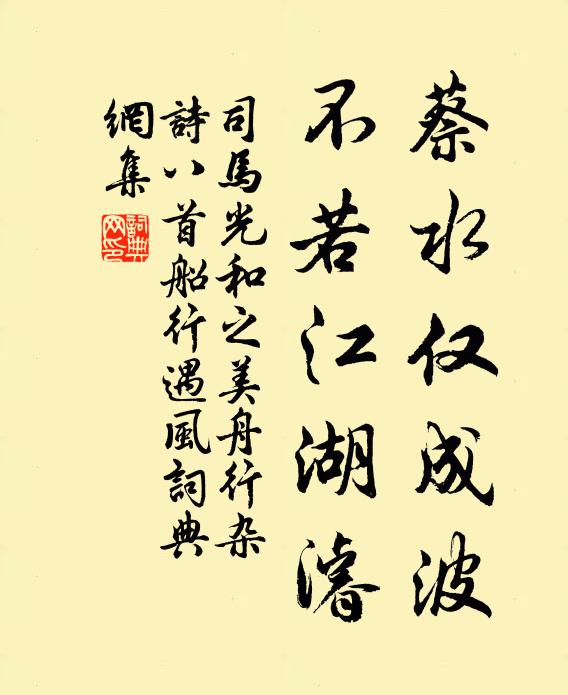 蔡水仅成波
不若江湖濬
司馬光和之美舟行杂
詩八首船行遇風詞典
網集
詞典
网印